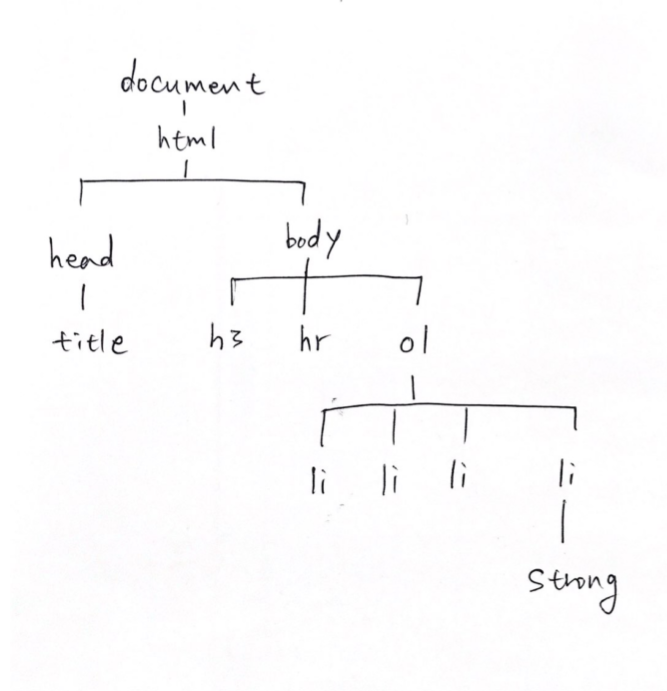 document
html
head body
title h3 hr ol
li li li li
Strong